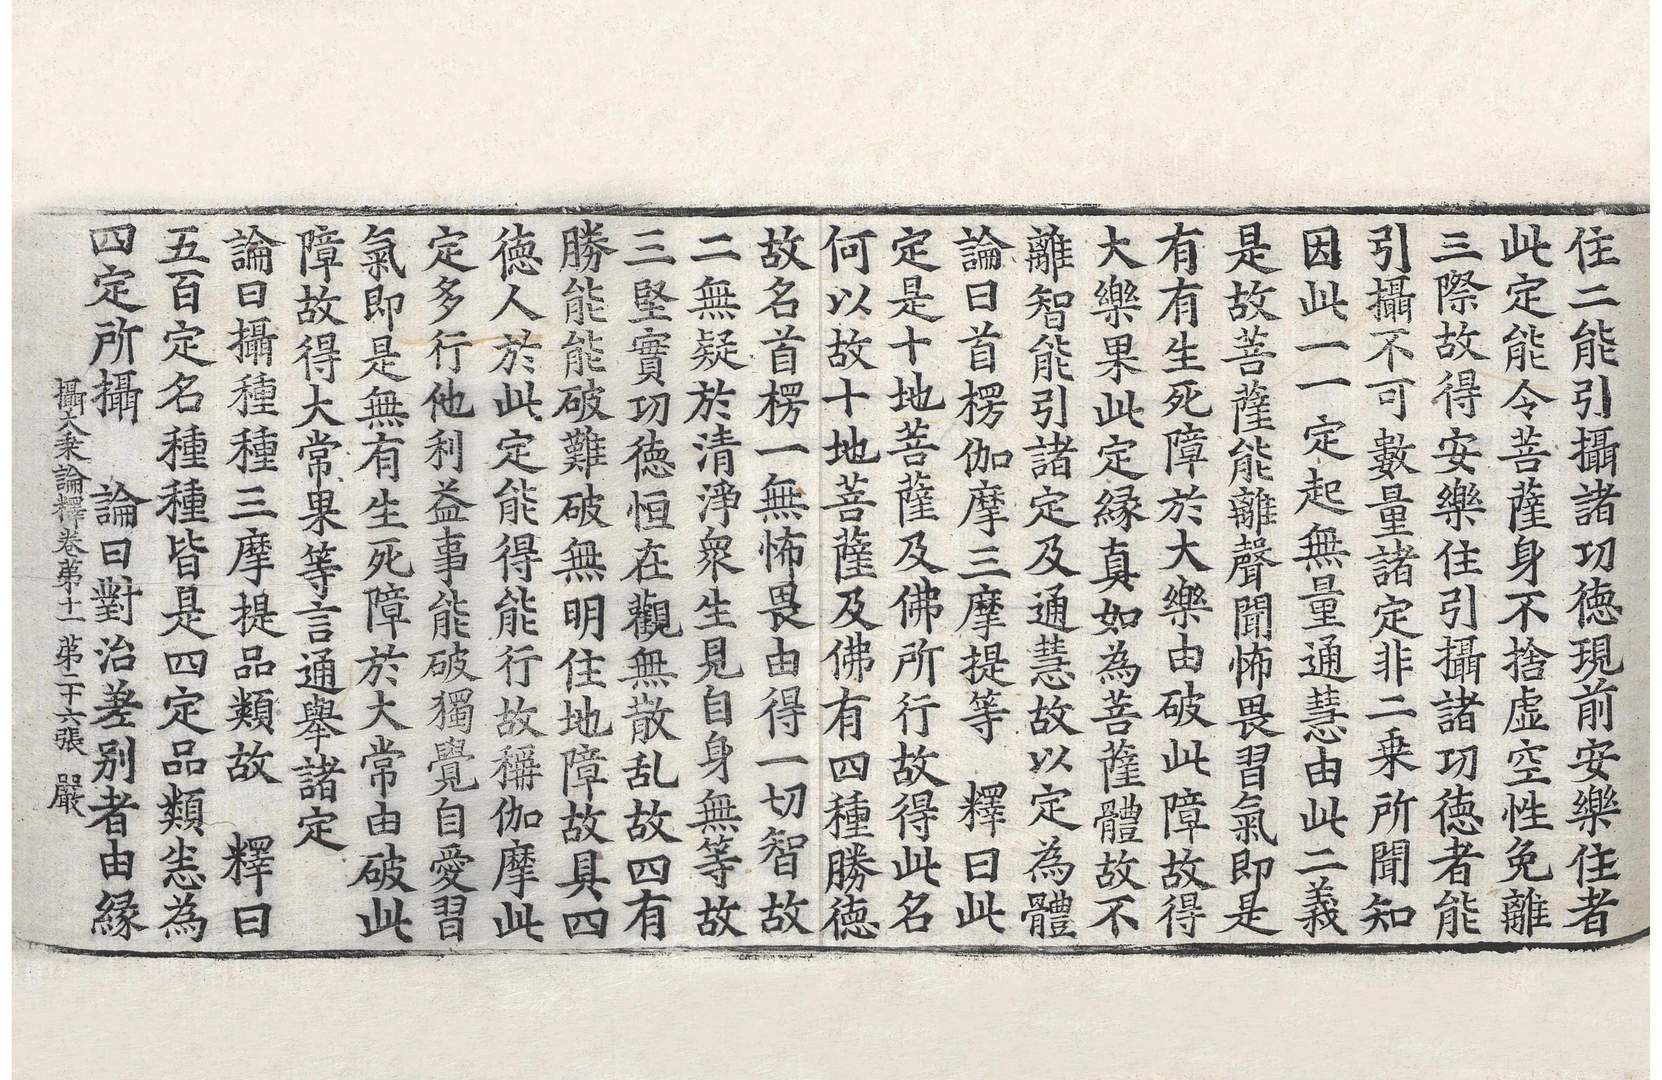 住二能引攝諸功德現前安樂住者
此定能令菩薩身不捨虛空性免離
三際故得安樂住引攝諸功德者能
引攝不可數量諸定非二乘所聞知
因此一一定起無量通慧由此二義
是故菩薩能離聲聞怖畏習氣即是
有有生死障於大樂由破此障故得
大樂果此定緣真如為菩薩體故不
離智能引諸定及通慧故以定為體
論曰首楞伽摩三摩提等　釋曰此
定是十地菩薩及佛所行故得此名
何以故十地菩薩及佛有四種勝德
故名首楞一無怖畏由得一切智故
二無疑於清淨衆生見自身無等故
三堅實功德恒在觀無散乱故四有
勝能能破難破無明住地障故具四
德人於此定能得能行故稱伽摩此
定多行他利益事能破獨覺自愛習
氣即是無有生死障於大常由破此
障故得大常果等言通舉諸定
論曰攝種種三摩提品類故　釋曰
五百定名種種皆是四定品類悉為
四定所攝　論曰對治差别者由緣
攝大乘論釋卷第十一　第二十六張　嚴